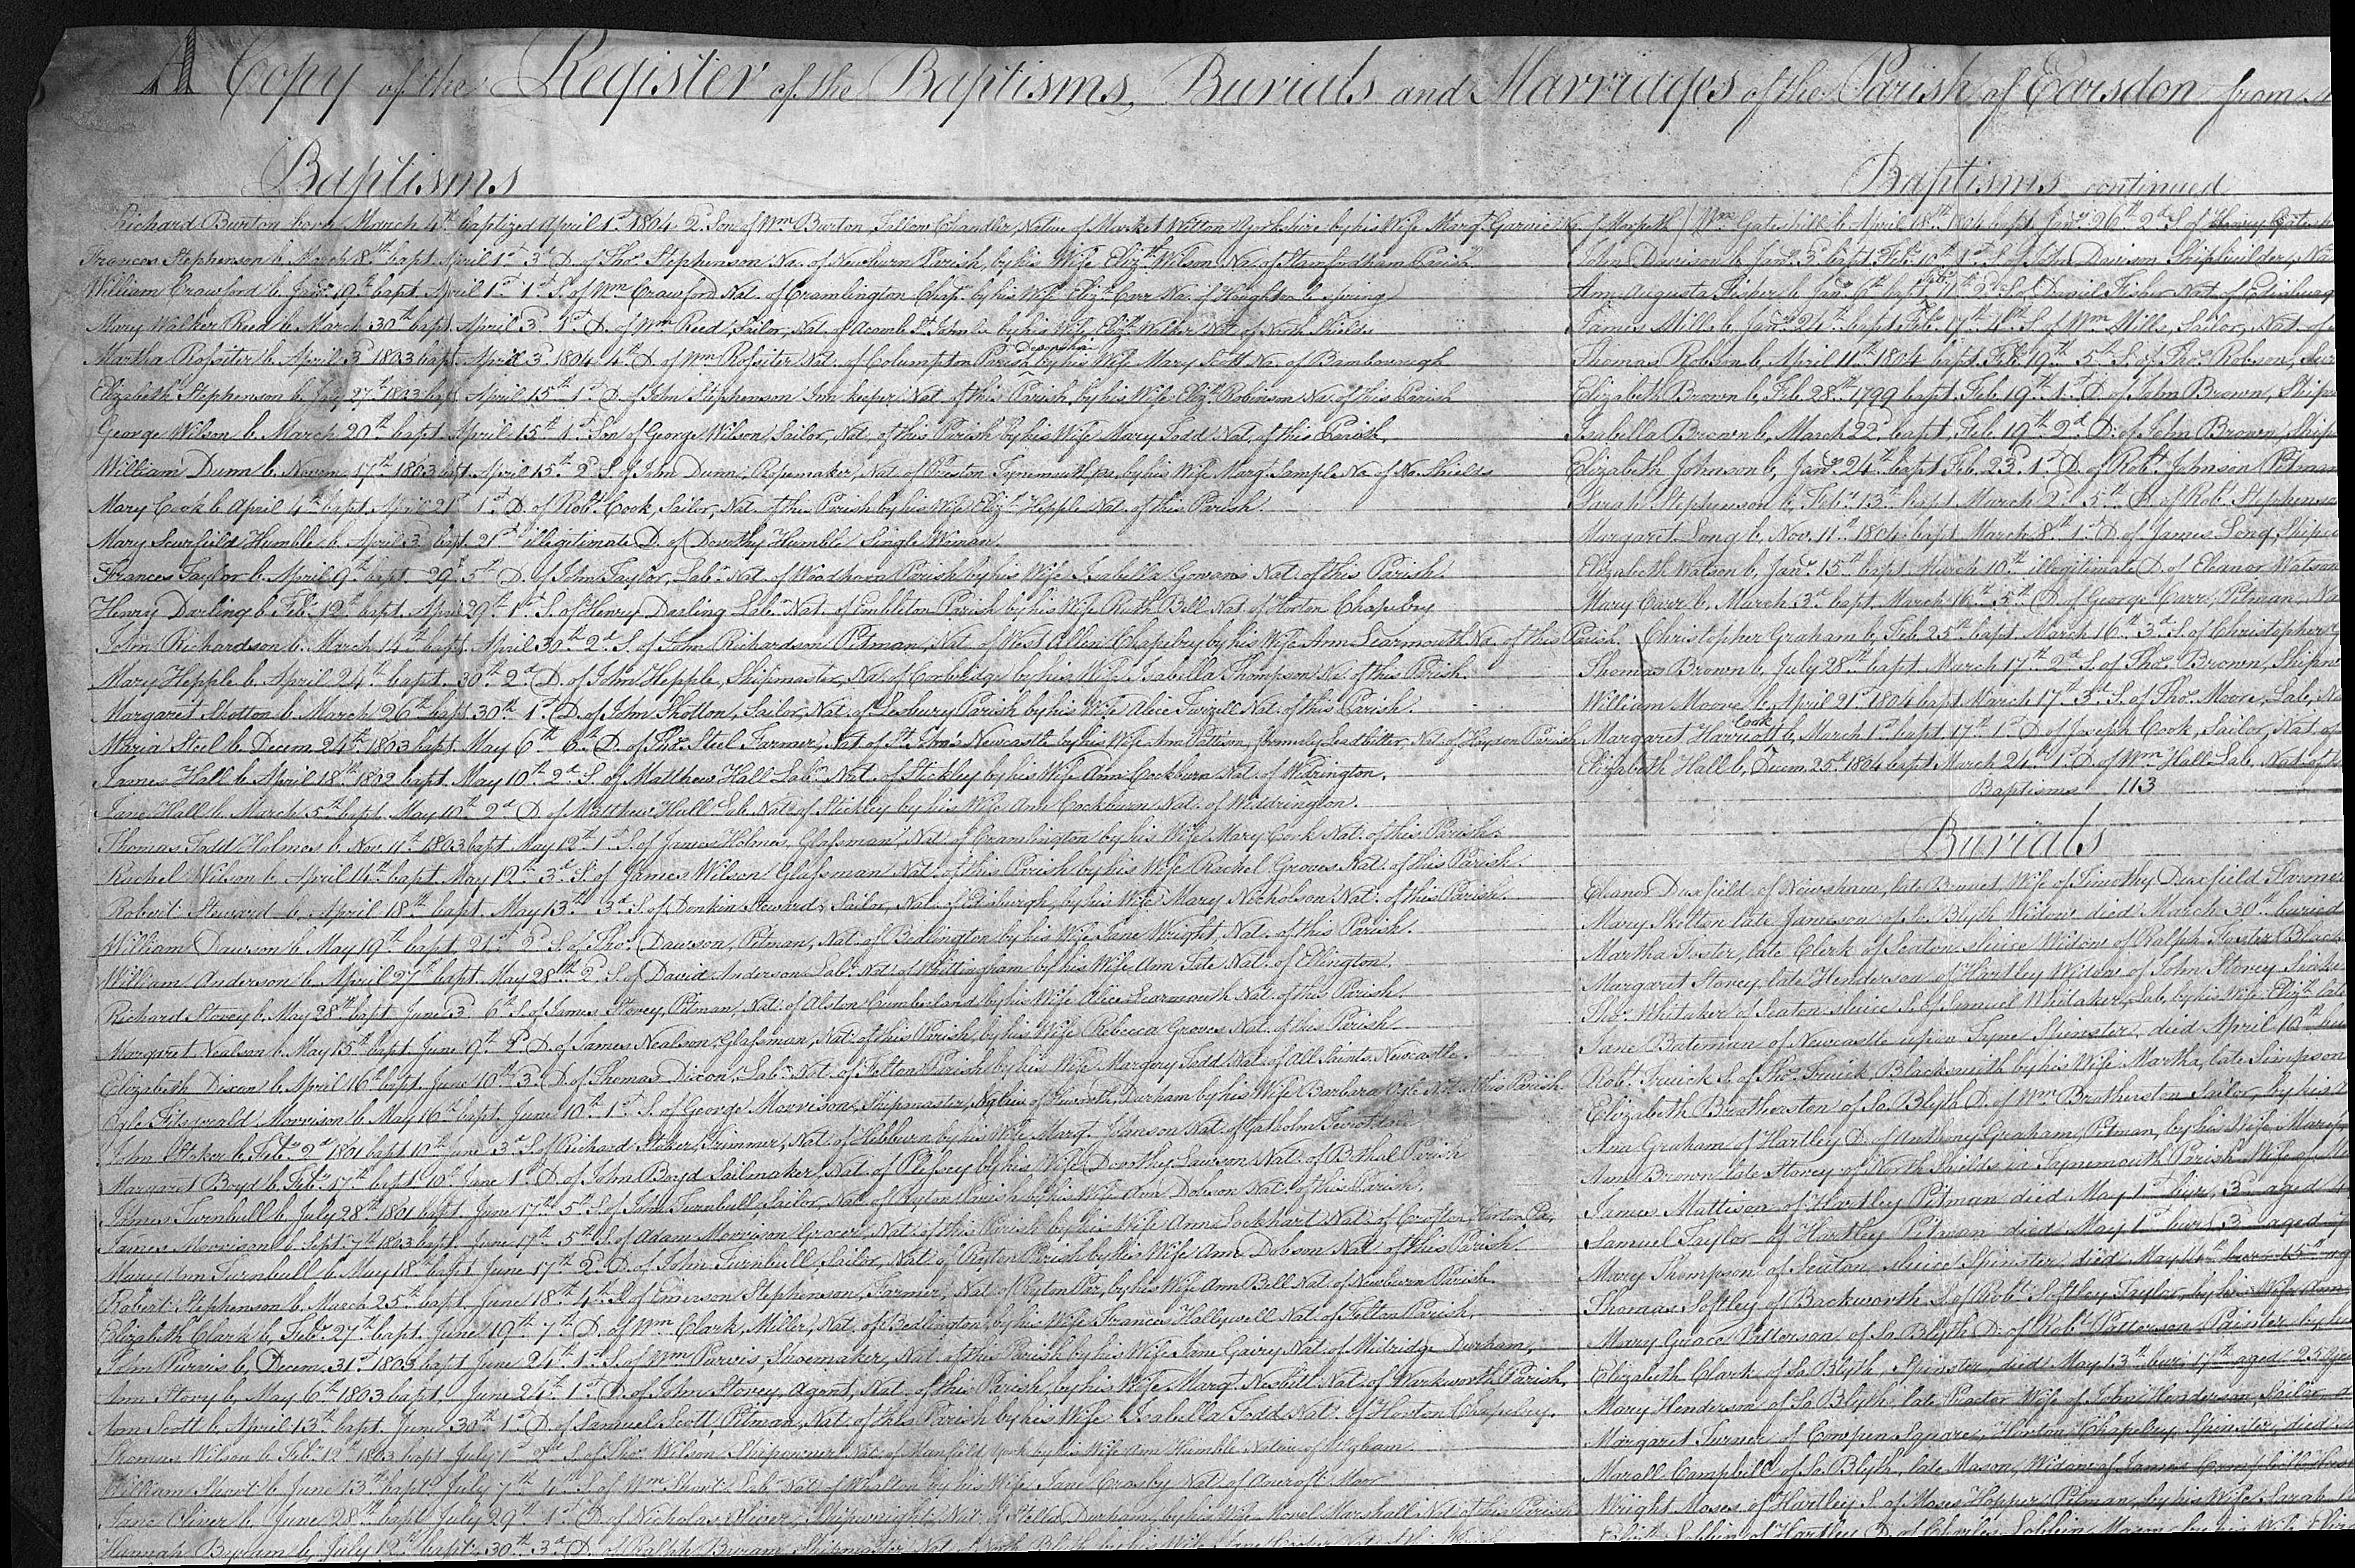 A Copy of the Register of the Baptisms, Burials and Marriages of the Parish of Earsdon from
Baptisms
Richard Burton born March 4th baptized April 1st 1804 2d Son of Wm Burton Tallow Chandler, Native of Market Witton Yorkshire by his Wife Margt Na. of Morpeth
Frances Stephenson b. March 8th bapt. April 1st 3d D. of Thos Stephenson Na. of Newburn Parish, by his Wife Elizth Wilson Na. of Stamfordham Parish
William Crawford b. Jany 19th bapt. April 1st 1st S. of Wm Crawford Nat. of Cramlington Chap. by his Wife Elizth Carr Na. of Houghton le spring
Mary Walker Reed b. March 30th bapt. April 3d 1st D. of Wm Reed, Sailor, Nat. of Acomb St John Le by his Wife Elizth Walker Nat. of North Shields
Martha Rofsiter b. April 3d 1803 bapt. April 3d 1804 4th D. of Wm Rofsiter Nat. of Columpton Parish by his Wife Mary Scott Na. of Bambourough
Elizabeth Stephenson b. July 27th 1803 bapt. April 15th 1st D. of John Stephenson Inn keeper Nat. of this Parish by his Wife Elizth Robinson Na. of this Parish
George Wilson b. March 20th bapt. April 15th 1st Son of George Wilson, Sailor, Nat. of this Parish by his Wife Mary Todd Nat. of this Parish.
William Dunn b. Novem. 17th 1803 bapt. April 15th 2d S. of John Dunn, Ropemaker, Nat. of Preston Tynemouth Pa. by his Wife Margt Sample Na. of No. Shields
Mary Cook b. April 4th bapt. April 21st 1st D. of Robt Cook, Sailor, Nat. of this Parish by his Wife Elizth Hepple Nat. of this Parish.
Mary Scurfield Humble b. April 3d bapt. 21st illegitimate D. of Dorothy Humble Single Woman.
Frances Taylor b. April 9th bapt. 29th 5th D. of John Taylor, Labr Nat. of Woodhorn Parish by his Wife Isabella Gowans Nat. of this Parish.
Henry Darling b. Feby 12th bapt. April 29th 1st S. of Henry Darling Labr Nat. of Embleton Parish by his Wife Ruth Bell Nat. of Horton Chapelry
John Richardson b. March 14th bapt. April 30th 2d S. of John Richardson Pitman, Nat. of West Allen Chapelry by his Wife Ann Learmouth Na. of this Parish.
Mary Hepple b. April 24th bapt. 30th 2d D. of John Hepple, Shipmaster, Na. of Corbridge by his Wife Isabella Thompson Na. of this Parish.
Margaret Shotton b. March 26th bapt. 30th 1st D. of John Shotton, Sailor, Nat. of Lesbury Parish by his Wife Alice Turzell Nat. of this Parish.
Maria Steel b. Decem. 24th 1803 bapt. May 6th 6th D. of Thos Steel Farmer, Nat. of St John's Newcastle by his Wife Ann Pattison, formerly Leadbitter, Nat. of Haydon Parish
James Hall b. April 18th 1802 bapt. May 10th 2d S. of Matthew Hall Labr Nat. of Stickley by his Wife Ann Cockburn Nat. of Widrington.
Jane Hall b. March 5th bapt. May 10th 2d D. of Matthew Hall Lab. Nat. of Stickley by his Wife Ann Cockburn Nat. of Widdrington.
Thomas Todd Holmes b. Nov. 11th 1803 bapt. May 12th 1st S. of James Holmes, Glafsman, Nat. of Cramlington by his Wife Mary Cook Nat. of this Parish.
Rachel Wilson b. April 16th bapt. May 12th 3d S. of James Wilson Glafsman Nat. of this Parish by his Wife Rachel Groves Nat. of this Parish.
Robert Steward b. April 18th bapt. May 13th 3d S. of Donkin Steward, Sailor, Nat. of Edinburgh, by his Wife Mary Nicholson Nat. of this Parish.
William Dawson b. May 19th bapt. 21st 2d S. of Thos Dawson, Pitman, Nat. of Bedlington by his Wife Jane Wright, Nat. of this Parish.
William Anderson b. April 27th bapt. May 28th 2d S. of David Anderson Labr Nat. of Whittingham by his Wife Ann Tate Nat. of Ellington.
Richard Storey b. May 28th bapt. June 3d 6th S. of James Storey Pitman, Nat. of Alston Cumberland by his Wife Alice Learmouth Nat. of this Parish.
Margaret Nealson b. May 15th bapt. June 9th 2d D. of James Nealson Glafsman, Nat. of this Parish, by his Wife Rebecca Groves Nat. of this Parish
Elizabeth Dixon b. April 16th bapt. June 10th 3d D. of Thomas Dixon, Labr Nat. of Felton Parish by his Wife Margery Todd Nat. of All Saints Newcastle.
Ogle Fitzgerald Morrison b. May 16th bapt. June 10th 1st S. of George Morrison, Shipmaster, Native of Heworth, Durham by his Wife Barbara Ogle Nat. of this Parish
John Staker b. Feby 2d 1801 bapt. 10th June 3d S. of Richard Staker, Trimmer, Nat. of Hebburn by his Wife Margt Johnson Nat. of
Margaret Boyd b. Feby 17th bapt. 10th June 1st D. of John Boyd Sailmaker, Nat. of Plefsey by his Wife Dorothy Lawson Nat. of Bothal Parish
James Turnbull b. July 28th 1801 bapt. June 17th 5th S. of John Turnbull, Sailor, Nat. of Ryton Parish by his Wife Ann Dobson Nat. of this Parish.
James Morrison b. Sept. 7th 1803 bapt. June 17th 5th S. of Adam Morrison Grocer, Nat. of this Parish by his Wife Ann Lockhart Nat. of Crofton, Horton Par.
Mary Ann Turnbull b. May 18th bapt. June 17th 2d D. of John Turnbull, Sailor, Nat. of Ryton Parish by his Wife Ann Dobson Nat. of this Parish.
Robert Stephenson b. March 25th bapt. June 18th 4th S. of Emerson Stephenson, Farmer, Nat. of Ryton Par. by his Wife Ann Bell Nat. of Newburn Parish.
Elizabeth Clark b. Feby 27th bapt. June 19th 7th D. of Wm Clark, Miller, Nat. of Bedlington, by his Wife Frances Hallywell Nat. of Felton Parish.
John Purvis b. Decem. 31st 1803 bapt. June 24th 1st S. of Wm Purvis, Shoemaker, Nat. of this Parish by his Wife Jane Gairy Nat. of Midridge Durham.
Ann Story b. May 6th 1803 bapt. June 24th 1st D. of John Storey, Agent, Nat. of this Parish, by his Wife Margt Nesbitt Nat. of Warkworth Parish.
Ann Scott b. April 13th bapt. June 30th 1st D. of Samuel Scott, Pitman, Nat. of this Parish by his Wife Isabella Todd Nat. of Horton Chapelry.
Thomas Wilson b. Feby 12th 1803 bapt. July 1st 2d S. of Thos Wilson Shipowner Nat. of Manfield, York by his Wife Ann Humble Native of Ulgham
William Short b. June 13th bapt. July 7th 4th S. of Wm Short Lab. Nat. of Whalton by his Wife Jane Crosby Nat. of Ancroft Moor
Jane Oliver b. June 28th bapt. July 29th 1st D. of Nicholas Oliver, Shipwright, Nat. of Stella, Durham, by his Wife Marshall Nat. of this Parish
Hannah Byram b. July 12th bapt. 30th 3d D. of Ralph Byram Shipmaster Nat. of North Blyth by his Wife Jane Cooper Nat. of this Parish
Baptisms continued
Wm Gateshill b. April 18th 1804 bapt. Jany 26th 2d S. of Henry
John Davison b. Jany 3d bapt. Feby 10th 1st S. of John Davison Shipbuilder, Na
Ann Augusta Fisher b. Jany 6th bapt. Feby 2d of Daniel Fisher Nat. of Edinburg
James Mills b. Jany 24th bapt. Feby 17th 4th S. of Wm Mills, Sailor, Nat. of
Thomas Robson b. April 11th 1804 bapt. Feby 19th 5th S. of Thos Robson,
Elizabeth Brown b. Feb. 28th 1799 bapt. Feb. 19th 1st D. of John Brown, Ship
Isabella Brown b. March 22d bapt. Feb. 19th 2d D. of John Brown, Ship
Elizabeth Johnson b. Jany 24th bapt. Feb. 23d 1st D. of Robt Johnson Pitman
Sarah Stephenson b. Feby 13th bapt. March 2d 5th D. of Robt Stephenson
Margaret Long b. Nov. 11th 1804 bapt. March 8th 1st D. of James Long, Ship
Elizabeth Watson b. Jany 15th bapt. March 10th illegitimate D. of Eleanor Watson
Mary Carr b. March 3d bapt. March 16th 5th D. of George Carr, Pitman, Na
Christopher Graham b. Feb. 25th bapt. March 16th 3d S. of Christopher
Thomas Brown b. July 28th bapt. March 17th 2d S. of Thos Brown, Ship
William Moore b. April 21st 1804 bapt. March 17th 3d S. of Thos Moore, Lab. N
Margaret Harriott Cook b. March 1st bapt. 17th 1st D. of Joseph Cook, Sailor, Nat. of
Elizabeth Hall b. Decem. 25th 1804 bapt. March 24th 1st D. of Wm Hall Lab. Nat. of
Baptisms 113
Burials
Eleanor Duxfield of Newsham, late Bennet Wife of Timothy Duxfield
Mary Skelton late Jameson of So. Blyth Widow died March 30th buried
Martha Foster, late Clerk of Seaton sluice Widow of Ralph Foster Black
Margaret Storey, late Henderson of Hartley Widow of John Storey
Thos Whitaker of Seaton sluice S. of Samuel Whitaker, Lab. by his Wife Elizth late
Jane Bateman of Newcastle upon Tyne Spinster, died April 10th
Robt Truick S. of Thos Truick, Blacksmith by his Wife Martha, late Simpson
Elizabeth Brotherston of So. Blyth D. of Wm Brotherston Sailor, by his
Ann Graham of Hartley D. of Anthony Graham, Pitman, by his Wife Mary
Ann Brown late Storey of North Shields in Tynemouth Parish Wife of
James Mattison of Hartley Pitman died May 1st buri. 3d aged
Samuel Taylor of Hartley Pitman died May 1st buri. 3d aged
Mary Thompson of Seaton sluice Spinster died May 14th buri. 15th
Thomas Softley of Backworth S. of Robt Softley Taylor, by his Wife Ann
Mary Grace Patterson of So. Blyth D. of Robt Patterson Painter by his
Elizabeth Clark of So. Blyth, Spinster, died May 13th buri. 17th aged 25
Mary Henderson of So. Blyth, late Proctor Wife of John Henderson, Sailor,
Margaret Turner of Cowpen Square, Horton Chapelry, Spinster, died
Marall Campbell of So. Blyth, late Mason, Widow of James Campbell
Wright Moses of Hartley S. of Moses Hopper, Pitman, by his Wife Sarah